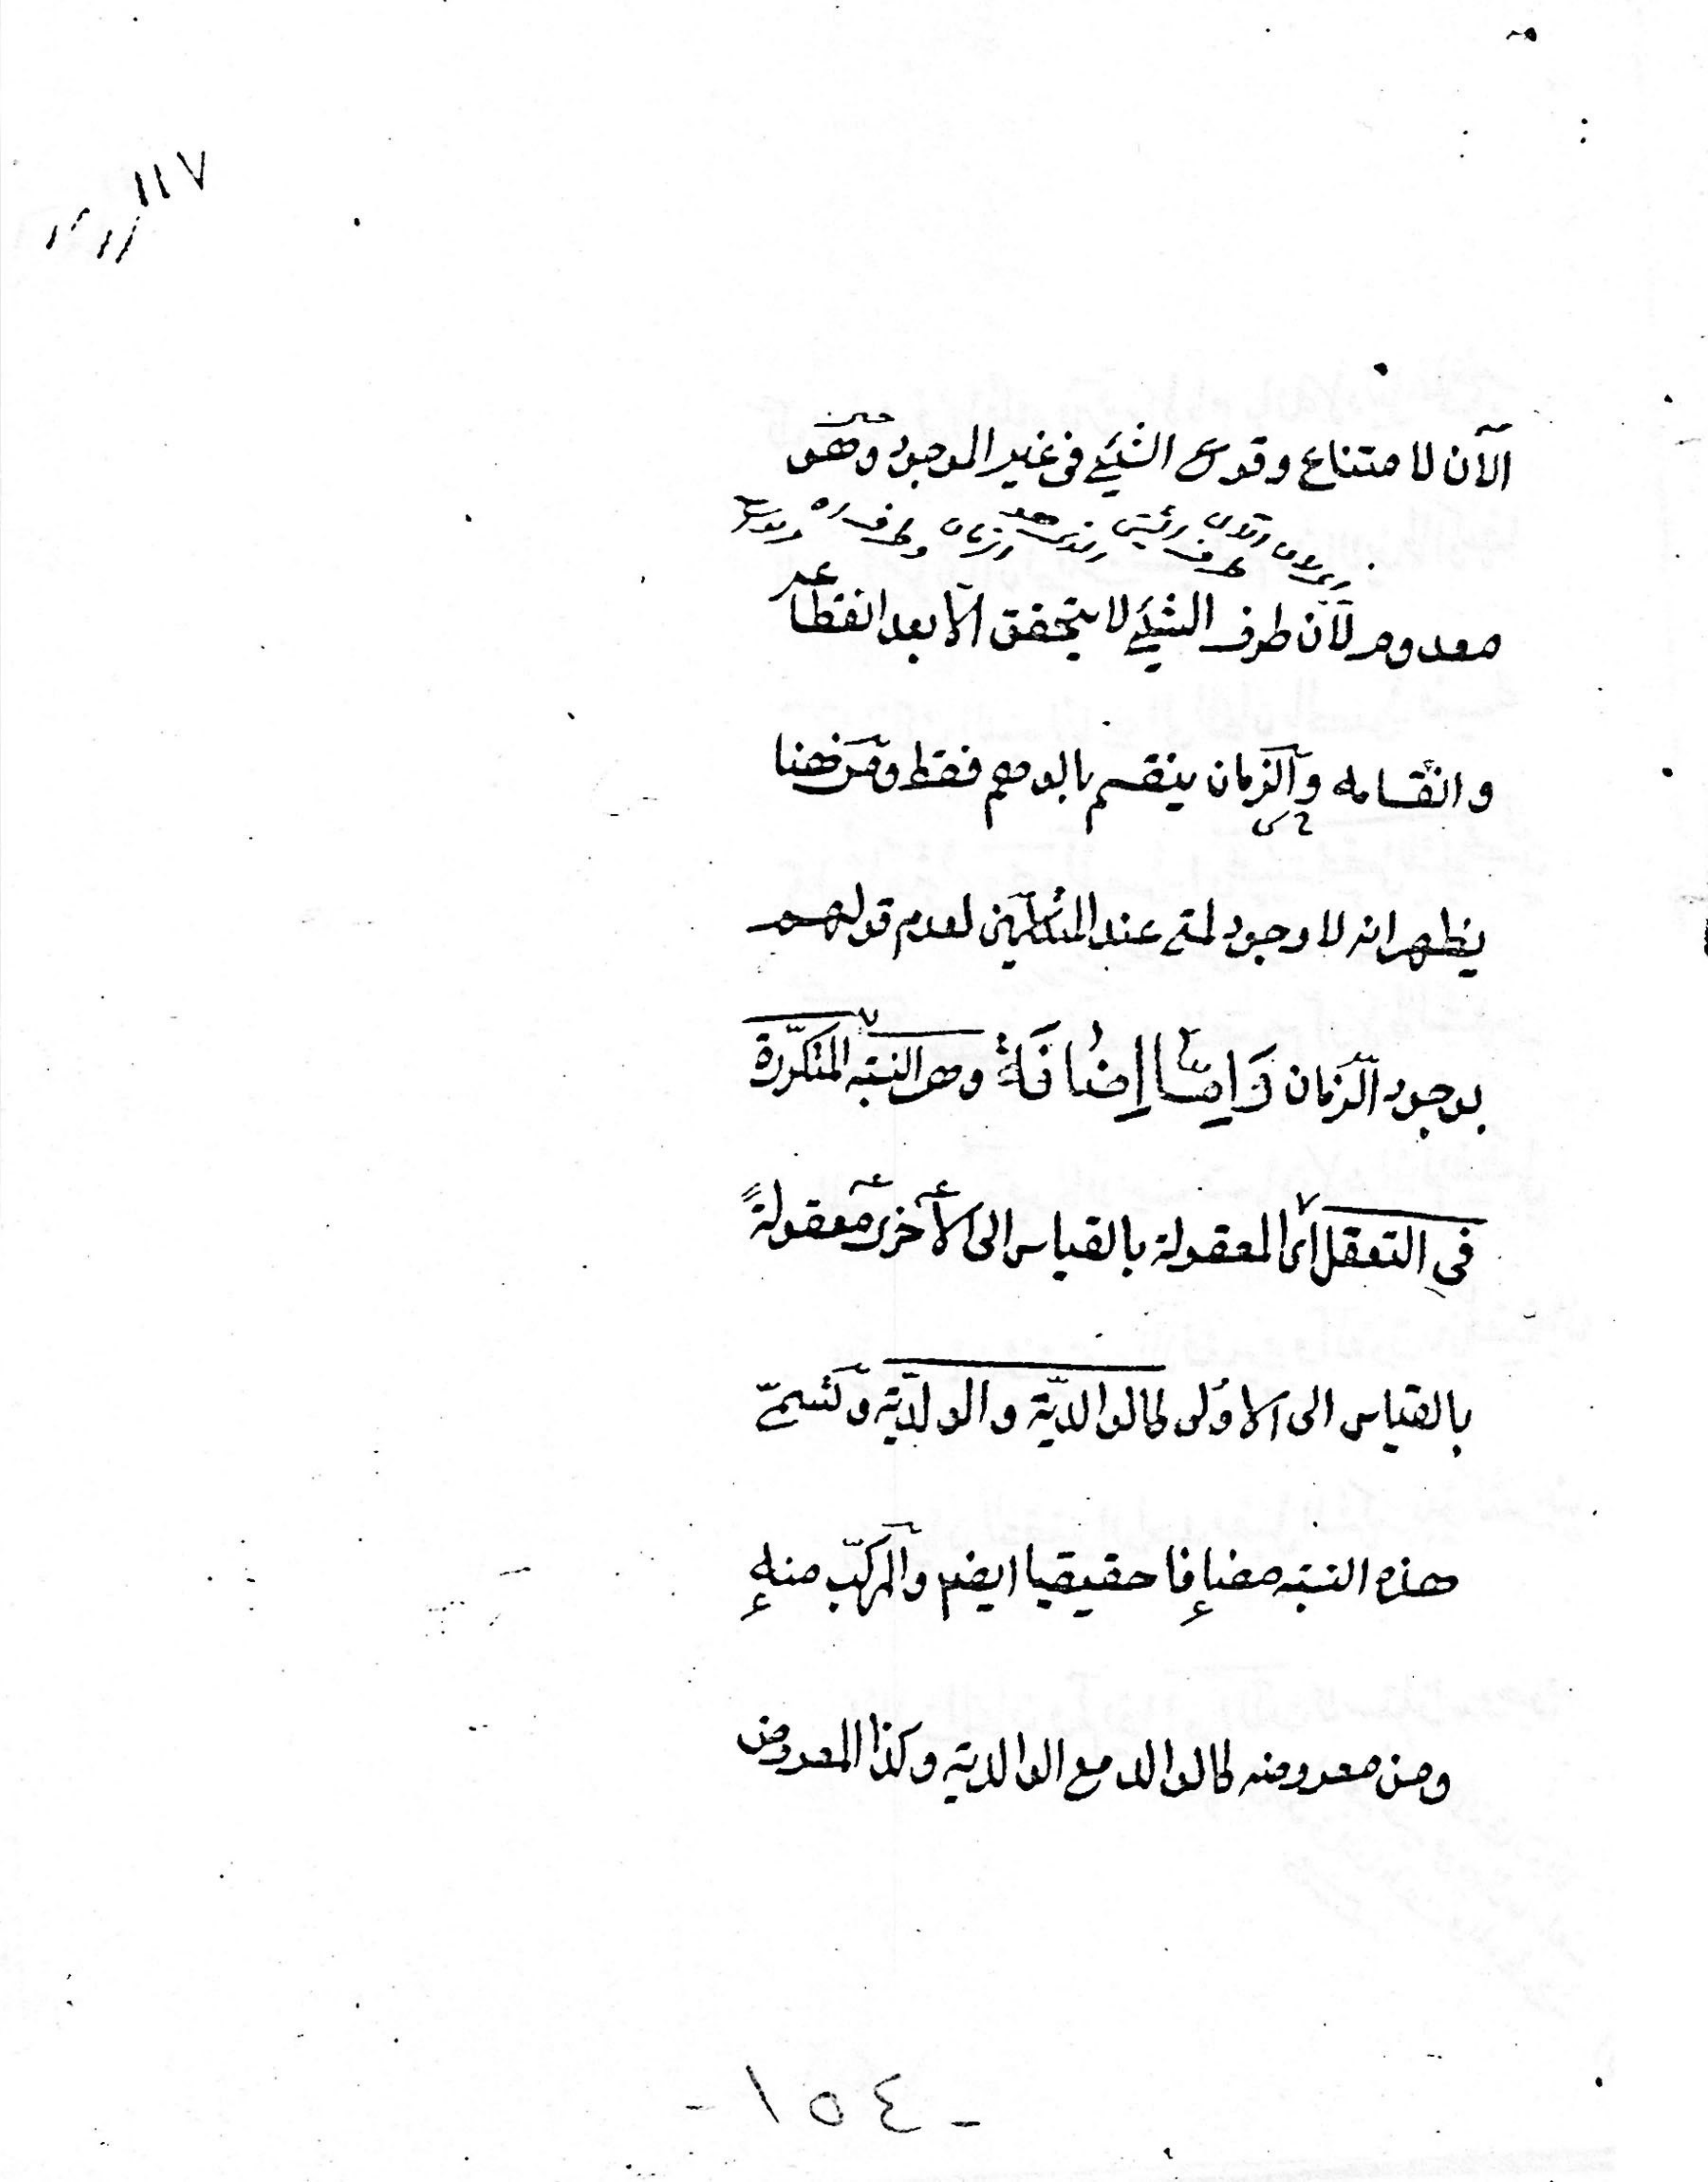 ١١٧
الآن لامتناع وقوع الشيئ فى غير الموجود وهو
معدوم لآن طرف الشيئ لا يتحقق الا بعد انقطا عه
وانقسامه والزمان ينقسم بالوهم فقط ومن ههنا
يظهر انه لا وجود لمتى عند المتكلمين لعدم قولهم
بوجود الزمان وَاِمَّا اِضَافَةٌ وهى النسبة المتكرّرة
فى التعقل اى المعقولة بالقياس الى الأخرى معقولةً
بالقياس الى الاولى كالوالديّة والولديّة وتسمّى
هذه النسبة مضافا حقيقيا ايضا والمركّب منها
ومن معروضه كالوالد مع الوالدية وكذا المعروض
- ١٥٤ -